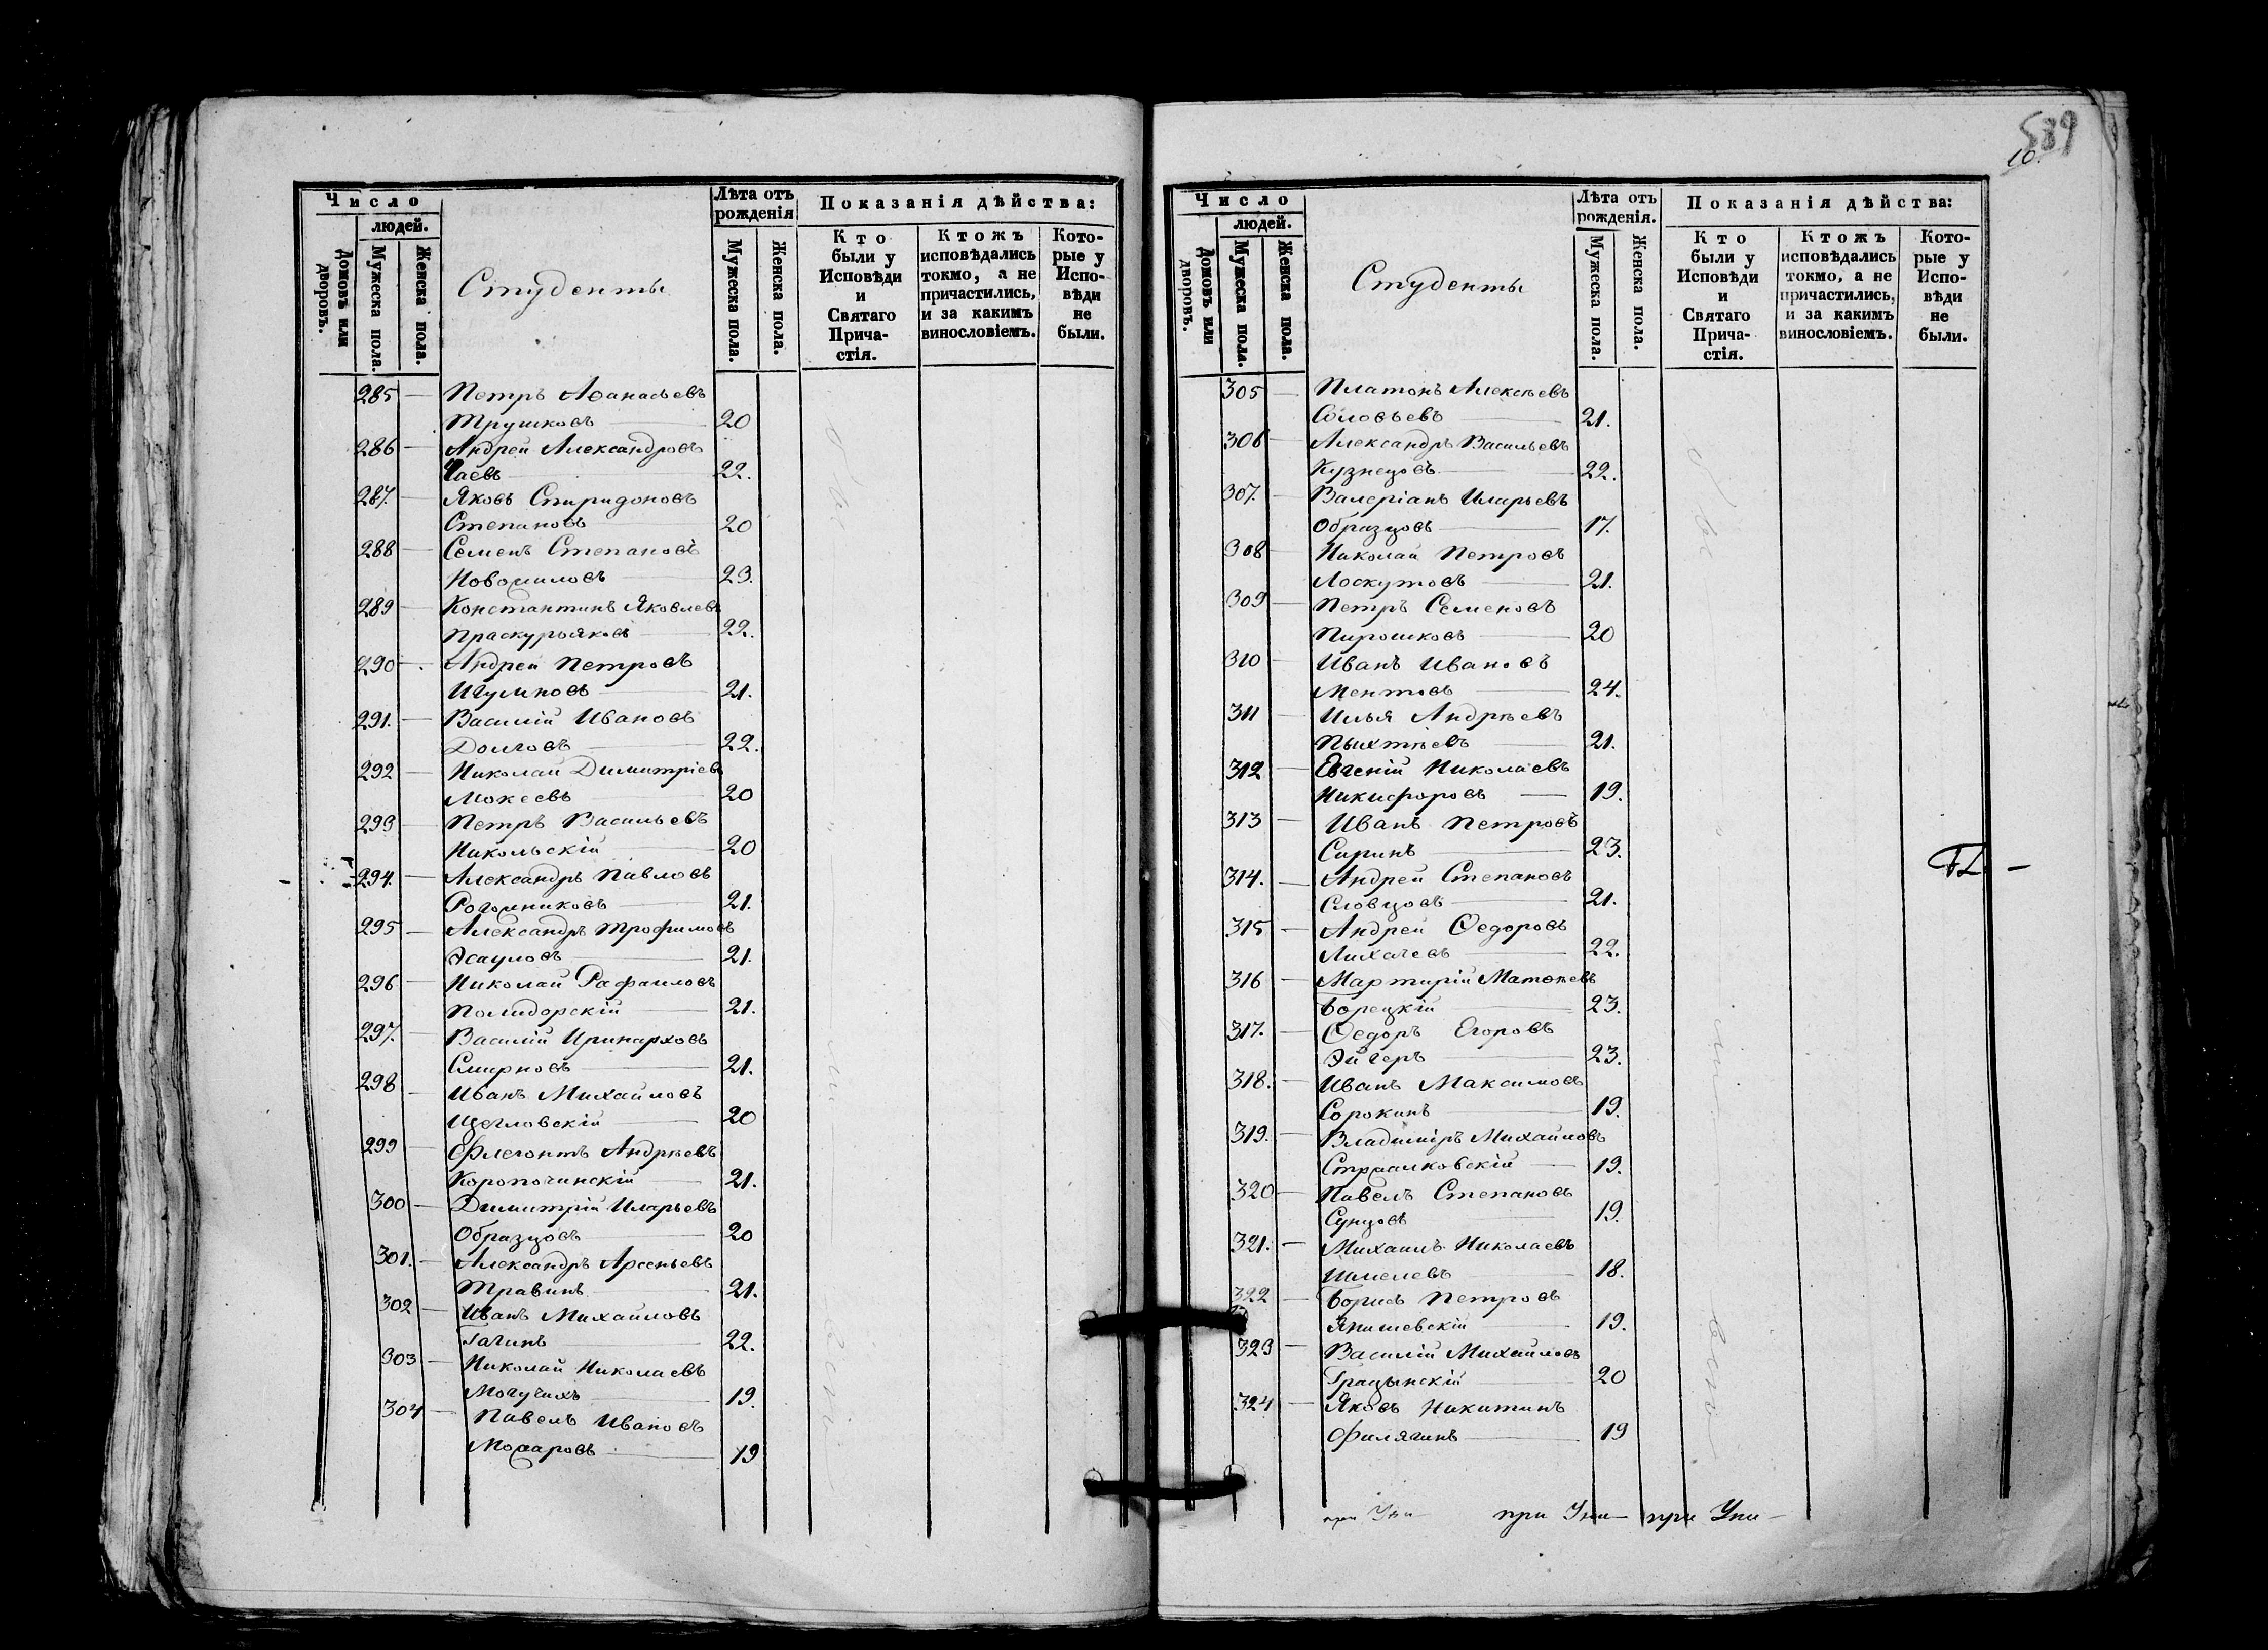 Число
людей.
Домовъ или дворовъ.
Мужеска пола.
Женска пола.
Студенты
Лѣта отъ
рожденія
Мужеска пола.
Женска пола.
Показанія дѣйства:
Кто
были у
Исповѣди
и
Святаго
Прича-
стія.
Ктожъ
исповѣдались
токмо, а не
причастились,
и за какимъ
винословіемъ.
Кото-
рые у
Испо-
вѣди
не
были.
285 — Петръ Аѳанасьевъ
Трушковъ — 20
286 — Андрей Александровъ
Чаевъ — 22.
287. — Яковъ Спиридоновъ
Степановъ 20
288 — Семенъ Степановъ
Новомиловъ — 23.
289 — Константинъ Яковлевъ
Праскуряковъ — 22.
290 — Андрей Петровъ
Игумновъ — 21.
291. — Василій Ивановъ
Долговъ — 22.
292 — Николай Димитріевъ
Мокеевъ — 20
293 — Петръ Васильевъ
Никольскій — 20
294. — Александръ Павловъ
Рогожниковъ — 21.
295 — Александръ Трофимовъ
Эсауловъ — 21.
296 — Николай Рафаиловъ
Полидорскій — 21.
297. — Василій Иринарховъ
Смирновъ — 21.
298 — Иванъ Михайловъ
Щегловскій — 20
299 — Флегонтъ Андрѣевъ
Коропочинскій — 21.
300 — Димитрій Иларьевъ
Образцовъ — 20
301. — Александръ Арсеньевъ
Травинъ — 21.
302 — Иванъ Михайловъ
Гагинъ — 22.
303 — Николай Николаевъ
Могучихъ — 19.
304 — Павелъ Ивановъ
Можаровъ — 19
589
10.
Число
людей.
Домовъ или дворовъ.
Мужеска пола.
Женска пола.
Студенты
Лѣта отъ
рожденія.
Мужеска пола.
Женска пола.
Показанія дѣйства:
Кто
были у
Исповѣди
и
Святаго
Прича-
стія.
Ктожъ
исповѣдались
токмо, а не
причастились,
и за какимъ
винословіемъ.
Кото-
рые у
Испо-
вѣди
не
были.
305 — Платонъ Алексѣевъ
Соловьевъ — 21.
306 — Александръ Васильевъ
Кузнецовъ — 22.
307. — Валеріанъ Иларьевъ
Образцовъ — 17.
308 — Николай Петровъ
Лоскутовъ — 21.
309 — Петръ Семеновъ
Пирожковъ — 20
310 — Иванъ Ивановъ
Ментовъ — 24.
311 — Илья Андрѣевъ
Пыхтѣевъ — 21.
312 — Евгеній Николаевъ
Никифоровъ — 19.
313 — Иванъ Петровъ
Сиринъ — 23.
314. — Андрей Степановъ
Словцовъ — 21.
315 — Андрей Ѳедоровъ
Лихачевъ — 22.
316 — Мартирій Матвѣевъ
Борецкій — 23.
317. — Ѳедоръ Егоровъ
Эйгеръ — 23.
318. — Иванъ Максимовъ
Сорокинъ — 19.
319. — Владиміръ Михайловъ
Стржалковскій — 19.
320 — Павелъ Степановъ
Сунцовъ — 19.
321. — Михаилъ Николаевъ
Шмелевъ — 18.
322 — Борисъ Петровъ
Янишевскій — 19.
323 — Василій Михайловъ
Грацынскій — 20
324 — Яковъ Никитинъ
Филягинъ — 19
при Уни— при Уни— при Уни—